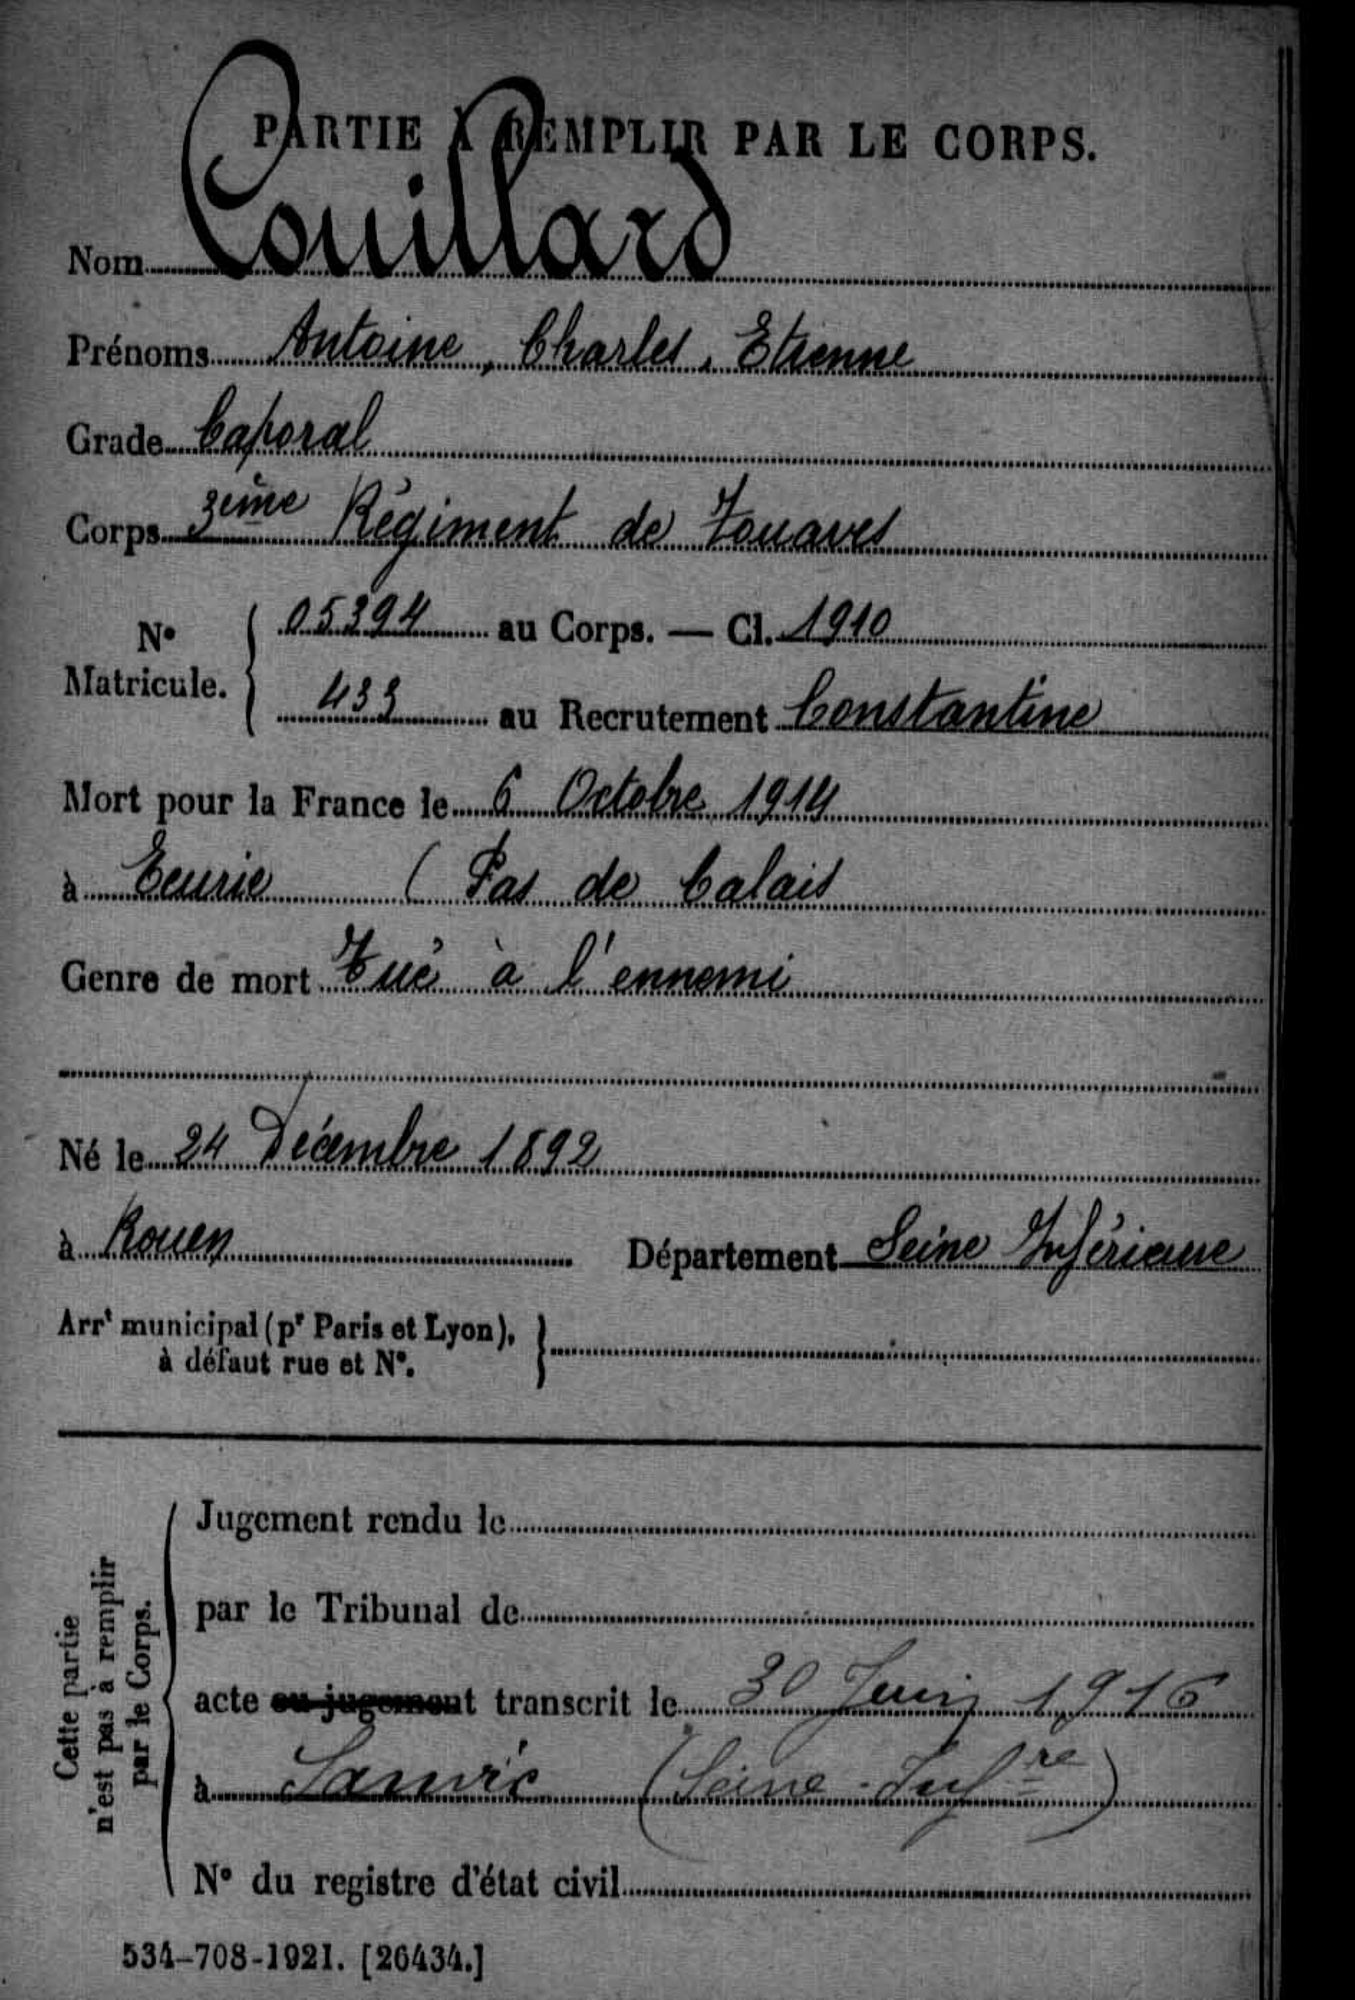 PARTIE À REMPLIR PAR LE CORPS.
Nom Couillard
Prénoms Antoine, Charles, Etienne
Grade Caporal
Corps 3ème Régiment de Zouaves
N° Matricule. 05394 au Corps. — Cl. 1910
433 au Recrutement Constantine
Mort pour la France le 6 Octobre 1914
à Ecurie ( Pas de Calais
Genre de mort Tué à l'ennemi
Né le 24 Décembre 1892
à Rouen Département Seine Inférieure
Arrt municipal (pr Paris et Lyon),
à défaut rue et N°.
Cette partie
n'est pas à remplir
par le Corps.
Jugement rendu le
par le Tribunal de
acte ou jugement transcrit le 30 Juin 1916
à Sanvic (Seine-Infre)
N° du registre d'état civil
534-708-1921. [26434.]